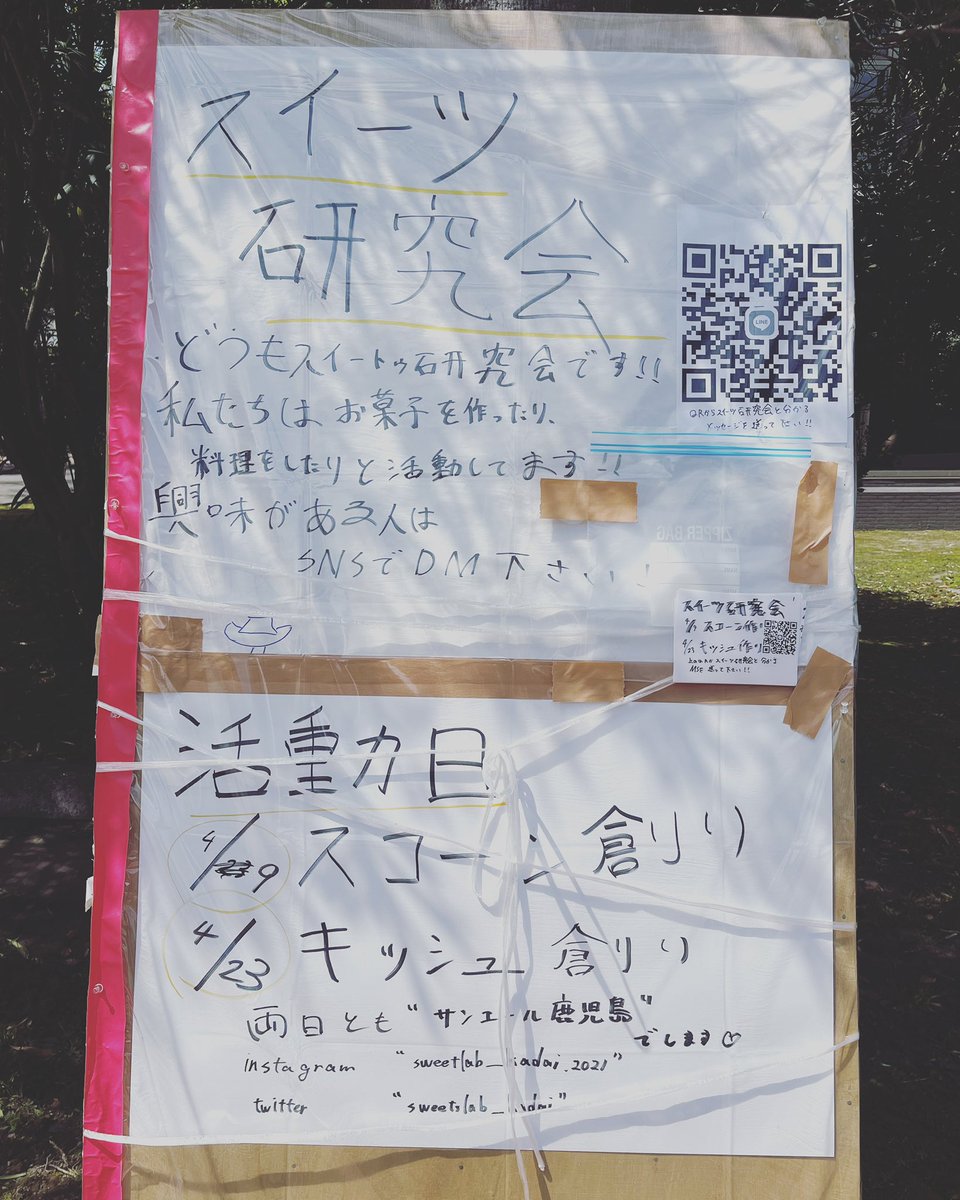 スイーツ
研究会
どうもスイートゥ研究会です!!
私たちは お菓子を作ったり、
料理をしたりと活動してます!!
興味がある人は
SNSでDM下さい!!
LINE
QRからスイーツ研究会と分かる
メッセージを送って下さい!!
ZIPPER BAG
スイーツ研究会
スコーン作り
4/23 キッシュ作り
活動日
4/9 スコーン 創り
4/23 キッシュ 創り
両日とも "サンエール鹿児島"
でします♡
instagram "sweetlab_kadai.2021"
twitter "sweetslab_kadai"